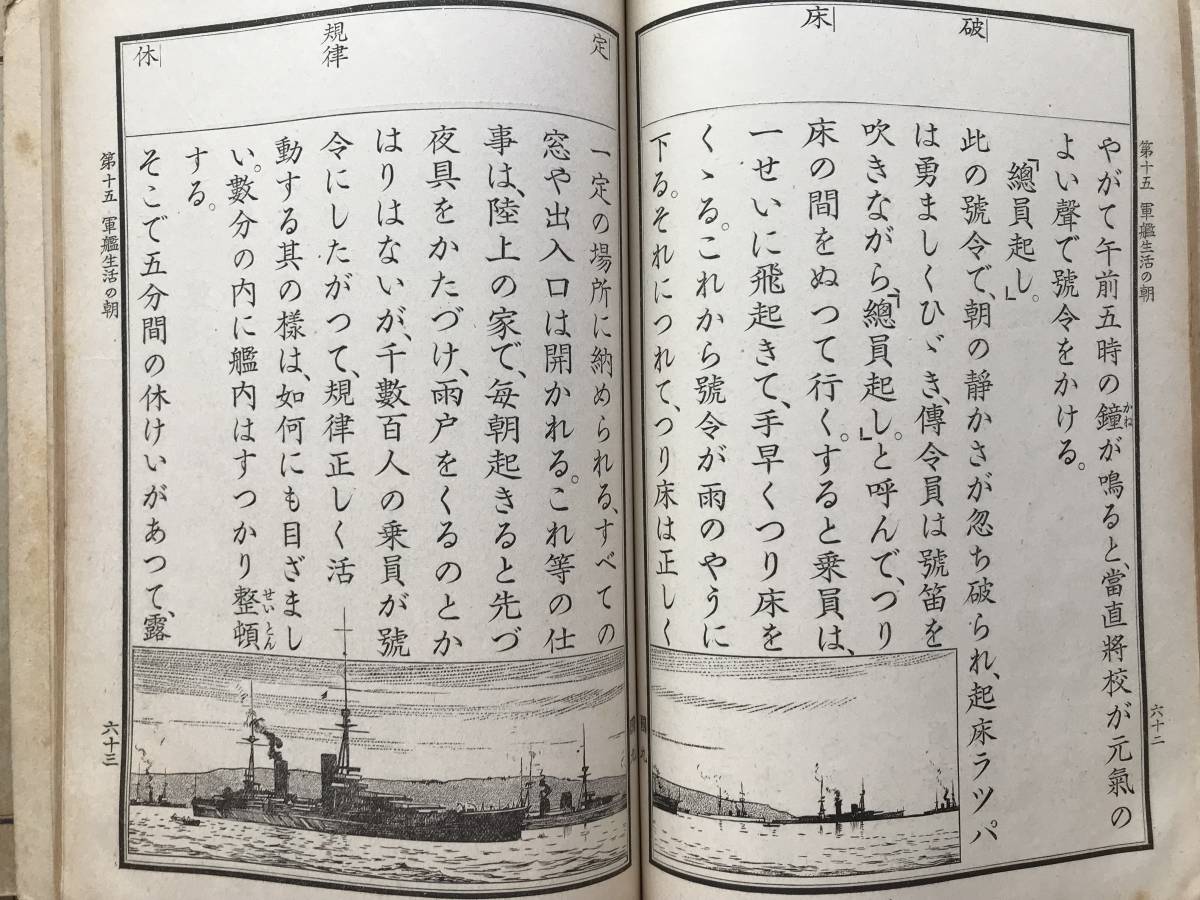 破
床
第十五 軍艦生活の朝
六十二
やがて午前五時の鐘が鳴ると、當直將校が元氣の
かね
よい聲で號令をかける。
「總員起し。」
此の號令で、朝の靜かさが忽ち破られ、起床ラツパ
は勇ましくひゞき、傳令員は號笛を
吹きながら、「總員起し。」と呼んで、つり
床の間をぬつて行く。すると乘員は、
一せいに飛起きて、手早くつり床を
くゝる。これから號令が雨のやうに
下る。それにつれて、つり床は正しく
定
規律
休
一定の場所に納められる、すべての
窓や出入口は開かれる。これ等の仕
事は、陸上の家で、毎朝起きると先づ
夜具をかたづけ、雨戸をくるのとか
はりはないが、千數百人の乘員が號
令にしたがつて、規律正しく活
動する其の樣は、如何にも目ざまし
い。數分の内に艦内はすつかり整頓
せいとん
する。
そこで五分間の休けいがあつて、露
第十五 軍艦生活の朝
六十三